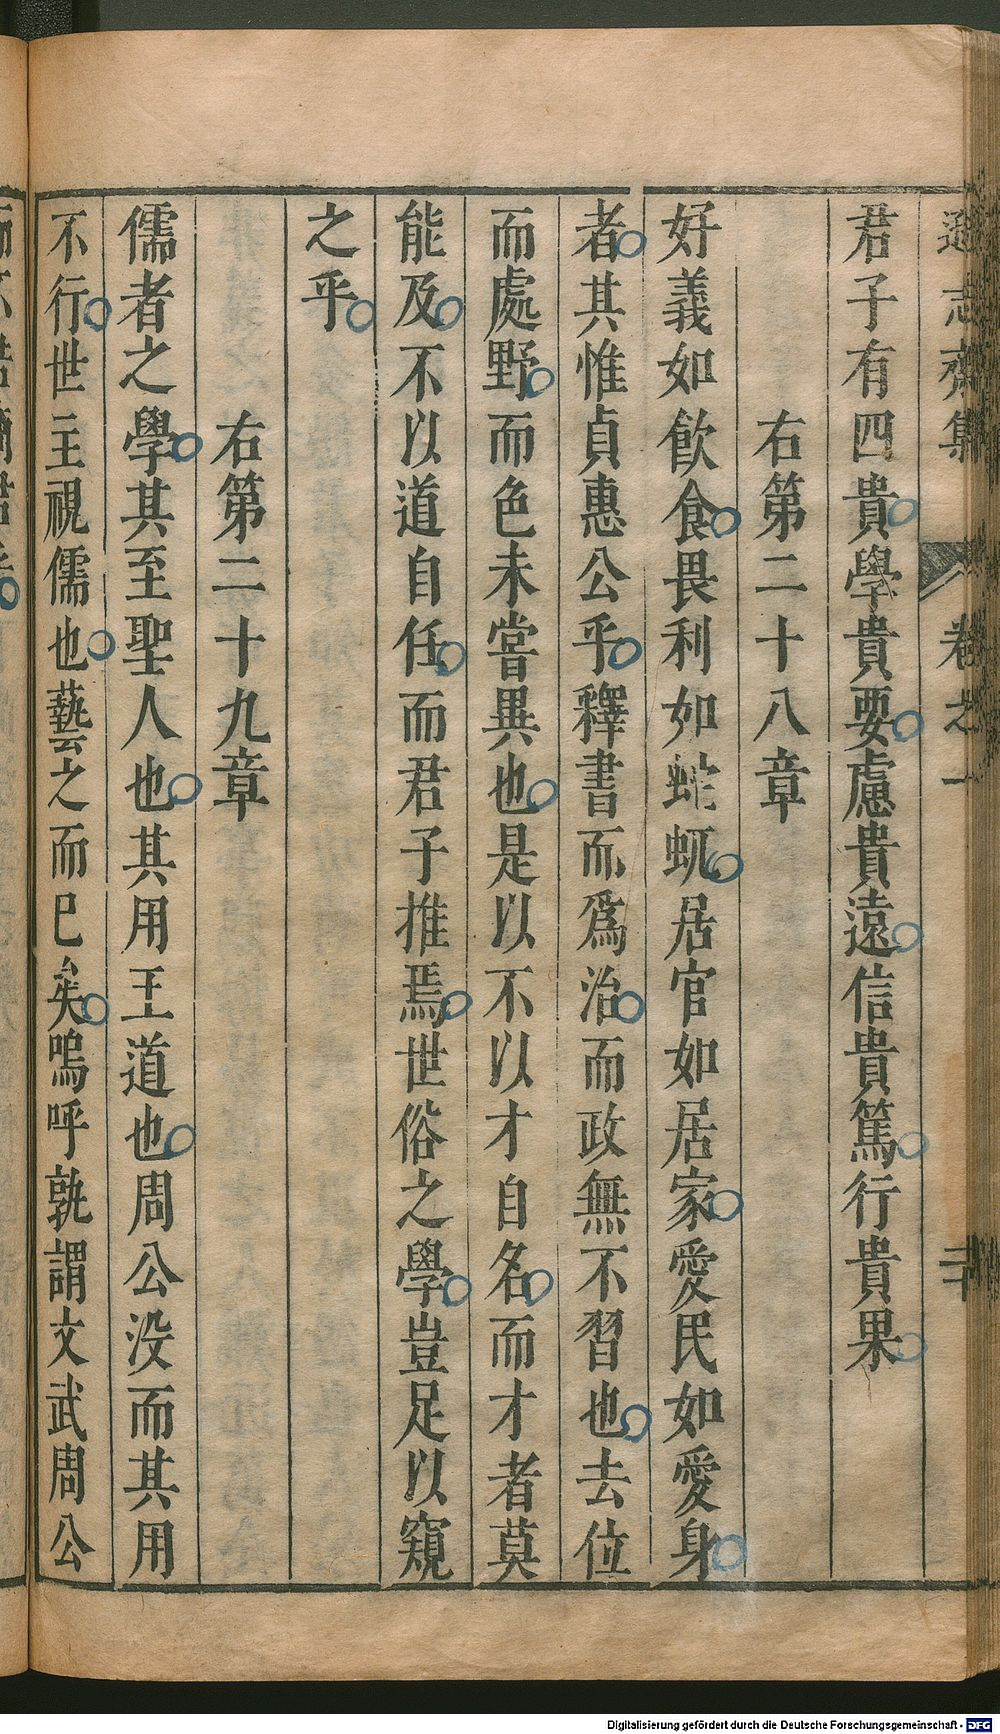 遜志齋集 卷之一 二十
君子有四貴學貴要慮貴遠信貴篤行貴果
右第二十八章
好義如飲食畏利如蛇虺居官如居家愛民如愛身
者其惟貞惠公乎釋書而爲治而政無不習也去位
而處野而色未嘗異也是以不以才自名而才者莫
能及不以道自任而君子推焉世俗之學豈足以窺
之乎
右第二十九章
儒者之學其至聖人也其用王道也周公没而其用
不行世主視儒也藝之而已矣嗚呼孰謂文武周公
Digitalisierung gefördert durch die Deutsche Forschungsgemeinschaft - DFG